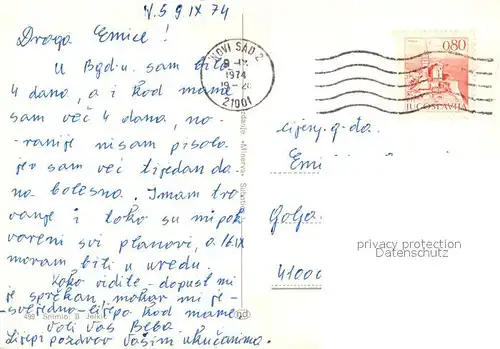 N.S 9 IX 74
Draga Emice!
U Bgd-u sam bila
4 dana, a i kod mame
sam već 4 dana, na-
ranije nisam pisala
jer sam već tjedan da-
na bolesna. Imam tro-
vanje i tako su mi pok-
vareni svi planovi, a 16.IX
moram biti u uredu.
Kako vidite - dopust mi
je sprčkan, makar mi je
svejedno lijepo kod mame,
voli Vas Beba.
Lijepi pozdrav Vašim ukućanima.
NOVI SAD 2
9-IX
1974
21901
0,80
JUGOSLAVIJA
cijenj. g-đa.
Emi
Golja
41000
Izdanje «Minerva» Subotica
499 Snimio: B. Jelkić
privacy protection
Datenschutz